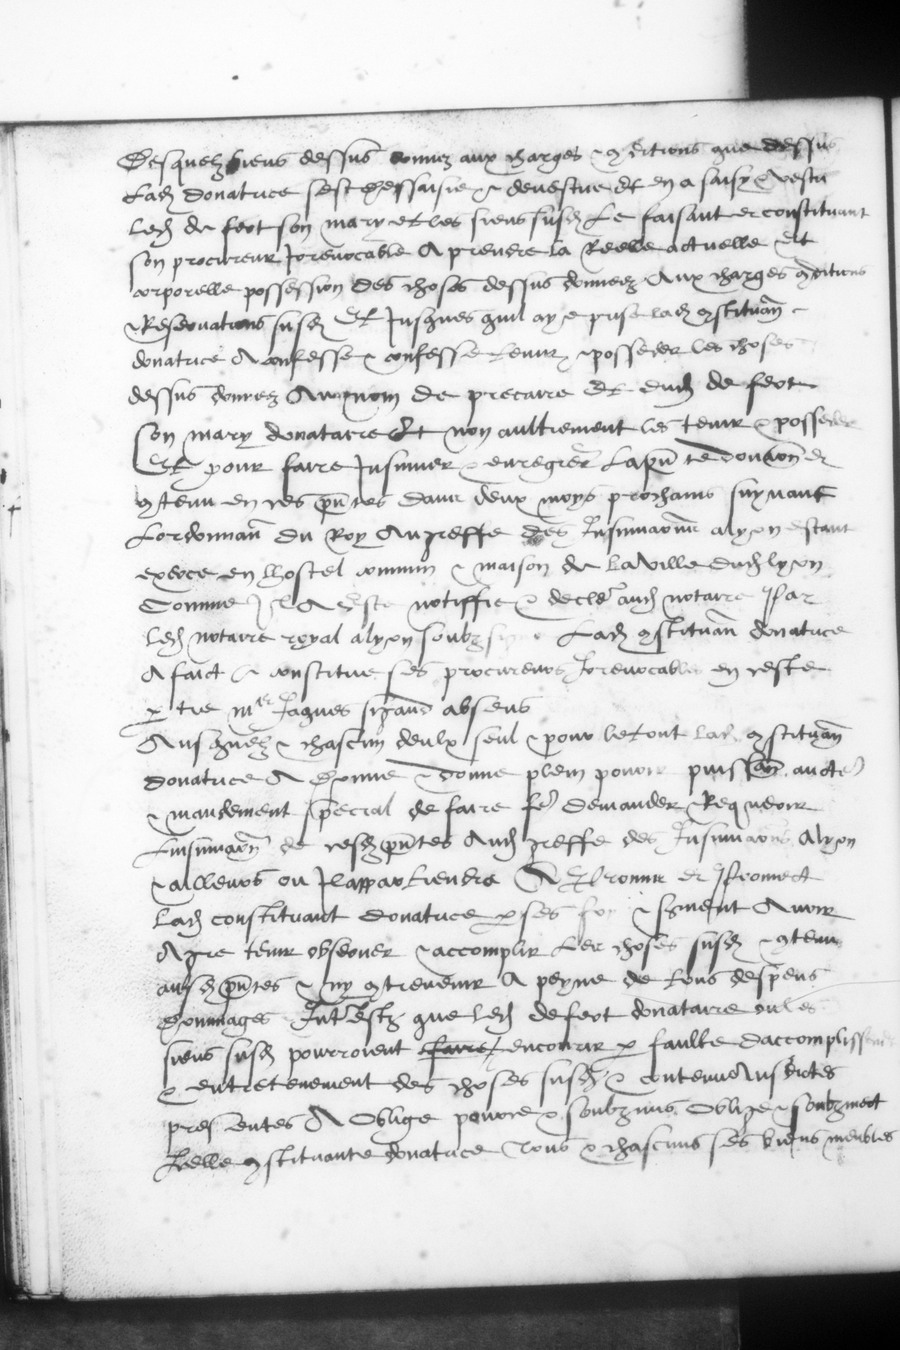 Desquelz biens dessus donnez aux charges & 9ditions que dessus
Lad donatrice sest dessaisie & devestue et en a saisy & vestu
led de feot son mary et les siens susd Le faisant et constituant
son procureur Irrevocable A prendre la Reelle actuelle Et
corporelle possession des choses dessus donnees Aux charges 9ditions
& Reservations susd Et Jusques quil aye prise lad 9stituan
donatrice A confesse & confesse tenir & posseder les choses
dessus donnez Au nom de precaire Et dud de feot
Son mary donataire Et non aultrement les tenir & posseder
Et pour faire Insinuer & enregrer La pnte donaon et
9tenu en ces pntes dans deux moys prochains suyvant
Lordonnan du Roy Au greffe des Insinuaons a lyon estant
exerce en lhostel commun & maison de la ville dud lyon
Comme Il A este notiffie & decler aud notaire par
led notaire royal a lyon soubz Lad 9stituan donatrice
A faict & constitue ses procureurs Irrevocables en ceste
p tie mre Jaques absens
Ausquelz & chascun deulx seul & pour le tout lad 9stituan
donatrice A donne & donne plein pouvoir puissan aucte
& mandement special de faire demander & Requerir
Linsinuaon de cesd pntes Aud greffe des Insinuaons A lyon
& ailleurs ou Il appartiendra Et promect
Lad constituant donatrice p ses foy & serment Avoir
Agre tenir observer & accomplir Les choses susd & 9tenu
ausd pntes & ny 9trevenir A peyne de tous despens
dommages Intestz que led de feot donataire ou les
siens susd pourroient faire encourir p faulte daccomplissement
& entretenement des choses susd & contenu Ausdictes
presentes A Oblige & soubzmis Oblige & soubzmect
Icelle 9stituante donatrice Tous & chascuns ses biens meubles